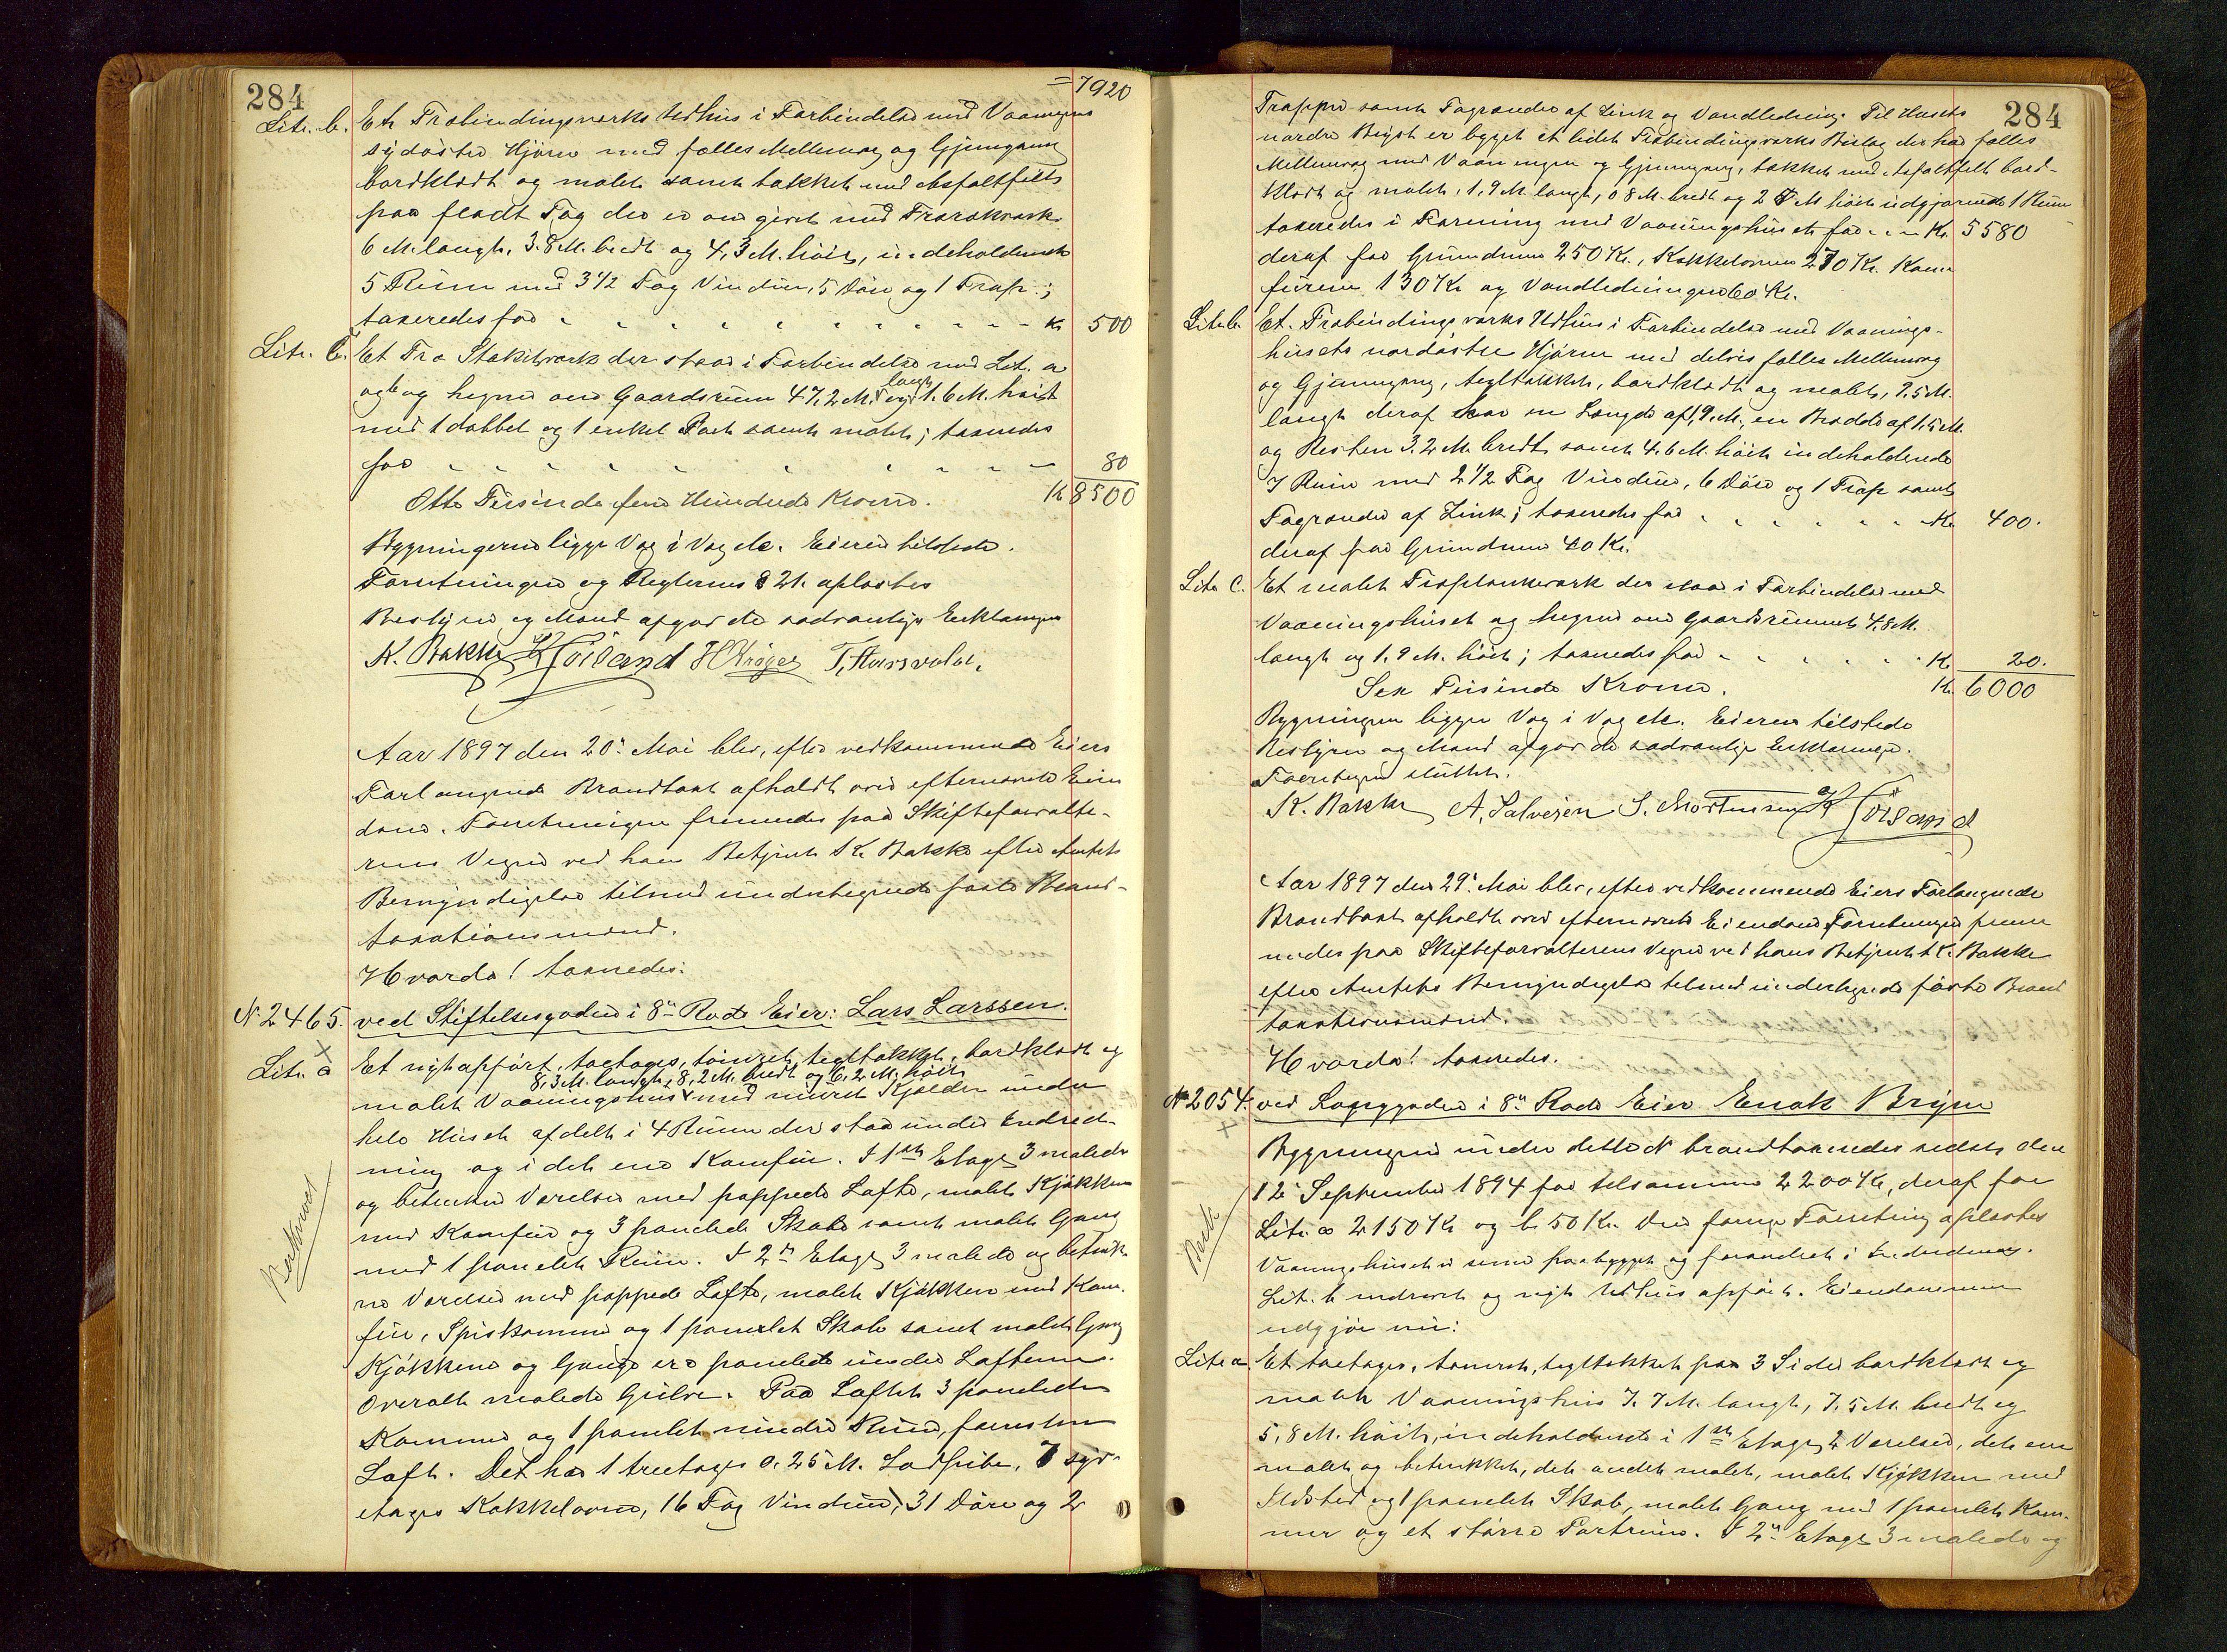 284
= 7920
Litr. b. Et Træbindingsværks Udhus i Forbindelse med Vaaningens
sydøstre Hjørne med fælles Mellemvæg og Gjennemgang
bordklædt og malet samt takket med Asfaltfilt
paa fladt Tag der er omgivet med Træværk
6 M. langt, 3.8 M. bredt og 4,3 M. høit, indeholdende
5 Rum med 3 1/2 Fag Vinduer, 5 Døre og 1 Trap.;
taxeredes for - - - Kr 500
Litr. C. Et Træ Stakitværk der staar i Forbindelse med Lit. a
og b og hegner om Gaardsrum 47,2 M. langt og 1.6 M. høit
med 1 dobbel og 1 enkel Port samt malet; taxeredes
for - - - 80
Otte Tusinde fem Hundrede Kroner. Kr 8500
Bygningerne ligge Væg i Væg etc. Eieren tilstede.
Forretningen og Reglernes § 21 oplæstes
Bestyrer og Mænd afgav de sædvanlige Erklæringer
K. Bakke Høiland H Krøger T. Hausvalds.
Aar 1897 den 20de Mai blev, efter vedkommende Eiers
Forlangende Brandtaxt afholdt over efternævnte Eien
dom. Forretningen fremmedes paa Skifteforvalte-
rens Vegne ved hans Betjent K. Bakke efter Amtets
Bemyndigelse tilmed undertegnede faste Brand-
taxationsmænd.
Hvorda! taxeredes:
No 2465. ved Stiftelsesgaden i 8de Rode Eier: Lars Larssen.
Litr. a Et nyt opført, toetages, tømret, tegltakket, bordklædt og
8,3 M. langt, 8,2 M. bredt og 6,2 M. høit
malet Vaaningshus med muret Kjælder under
hele Huset afdelt i 4 Rum der staa under Indred-
ning og i det ene Komfur. I 1ste Etage 3 malede
og betrukne Værelser med pappede Lofte, malet Kjøkken
med Komfur og 3 panelede Skabe samt malet Gang
med 1 panelet Rum. I 2den Etage 3 malede og betruk
ne Værelser med pappede Lofte, malet Kjøkken med Kom-
fur, Spiskammer og 1 panelet Skab samt malet Gang
Kjøkkene og Gange ere panelede under Lofterne.
Overalt malede Gulve. Paa Loftet 3 panelede
Kammer og 1 panelet mindre Rum, forresten
Loft. Det har 1 treetages 0,25 M. Lodpibe, 7 syv-
etages Kakkelovne, 16 Fag Vinduer, 31 Døre og 2
284
Trapper samt Tagrender af Zink og Vandledning. Til Husets
nordre Bryst er bygget et lidet Træbindingsværks Bislag der har fælles
Mellemvæg med Vaaningen og Gjennemgang, takket med Asfaltfilt bord-
klædt og malet, 1,9 M. langt, 0 8 M. bredt og 2 5 M høit udgjørende 1 Rum
taxeredes i Forening med Vaaningshuset for - - - Kr. 5580
deraf for Grundmur 250 Kr., Kakkelovne 270 Kr. Kom
furerne 130 Kr og Vandledningen 60 Kr.
Litr b. Et. Træbindings værks Udhus i Forbindelse med Vaanings-
husets nordøstre Hjørne med delvis fælles Mellemvæg
og Gjennemgang, tegltakket, bordklædt og malet, 7,5 M.
langt deraf har en Længde af 1,9 M., en Bredde af 1,5 M.
og Resten 3,2 M. bredt samt 4,6 M. høit indeholdende
7 Rum med 2 1/2 Fag Vinduer, 6 Døre og 1 Trap samt
Tagrender af Zink; taxeredes for - - - Kr 400.
deraf for Grundmur 40 Kr.
Litr C. Et malet Træplankeværk der staar i Forbindelse med
Vaaningshuset og hegner om Gaardsrummet 4,8 M.
langt og 1.9 M. høit; taxeredes for - - - Kr 20.
Sex Tusinde Kroner. Kr. 6000
Bygningerne ligger Væg i Væg etc. Eieren tilstede
Bestyrer og Mænd afgav de sædvanlige Erklæringer.
Forretningen sluttet.
K. Bakke A. Salvesen S. Mortensen Høiland
Aar 1897 den 29de Mai blev, efter vedkommende Eiers Forlangende
Brandtaxt afholdt over efternævnte Eiendom. Forretningen frem
medes paa Skifteforvalterens Vegne ved hans Betjent K. Bakke
efter Amtets Bemyndigelse tilmed undertegnede faste Brand
taxationsmænd.
Hvorda! taxeredes.
No 2054. ved Langgaden i 8de Rode Eier Enok Bryne
Bygningerne under dette No brandtaxeredes sidst den
12te September 1894 for tilsammen 2200 Kr, deraf for
Litr. a 2150 Kr og b. 50 Kr. Den forrige Forretning oplæstes
Vaaningshuset er senere paabygget og forandret i Indredning.
Lit. b nedrevet og nyt Udhus opført. Eiendommen
udgjør nu:
Litr a. Et toetages, tømret, tegltakket paa 3 Sider bordklædt og
malet Vaaningshus 7,7 M. langt, 7,5 M. bredt og
5,8 M. høit, indeholdende i 1ste Etage 2 Værelser, det ene
malet og betrukket, det andet malet, malet Kjøkken med
Ildsted og 1 panelet Skab, malet Gang med 1 panelet Kam-
mer og et større Portrum. I 2den Etage 3 malede og